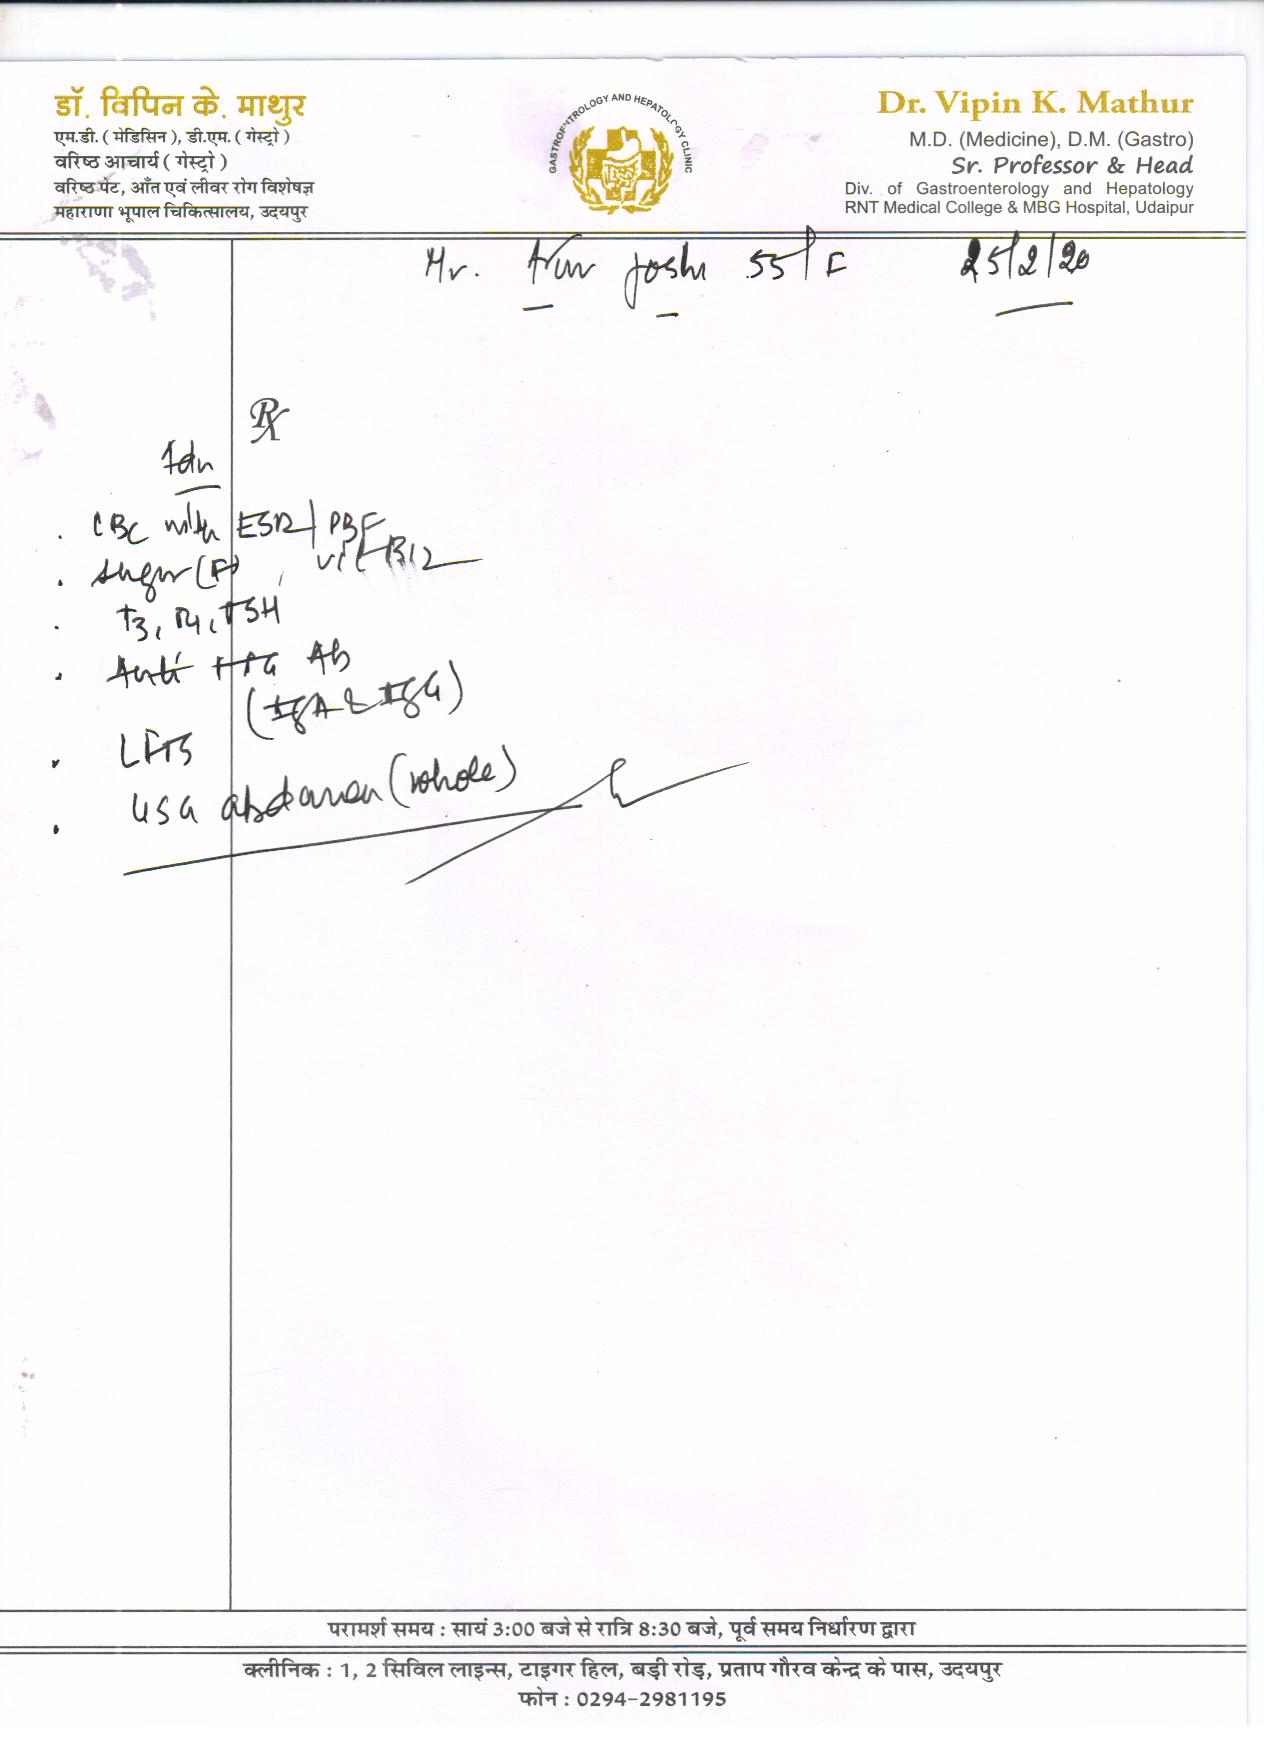 डॉ. विपिन के. माथुर
एम.डी. ( मेडिसिन ), डी.एम. ( गेस्ट्रो )
वरिष्ठ आचार्य ( गेस्ट्रो )
वरिष्ठ पेट, आँत एवं लीवर रोग विशेषज्ञ
महाराणा भूपाल चिकित्सालय, उदयपुर
GASTROENTROLOGY AND HEPATOLOGY CLINIC
Dr. Vipin K. Mathur
M.D. (Medicine), D.M. (Gastro)
Sr. Professor & Head
Div. of Gastroenterology and Hepatology
RNT Medical College & MBG Hospital, Udaipur
Mr. Joshi 55/F 25/2/20
Rx
. CBC with ESR/PBF
. Sugar (F), Vit B12
. T3, T4, TSH
. Anti tTG Ab
(IgA & IgG)
. LFTS
. USG abdomen (whole)
परामर्श समय : सायं 3:00 बजे से रात्रि 8:30 बजे, पूर्व समय निर्धारण द्वारा
क्लीनिक : 1, 2 सिविल लाइन्स, टाइगर हिल, बड़ी रोड़, प्रताप गौरव केन्द्र के पास, उदयपुर
फोन : 0294-2981195